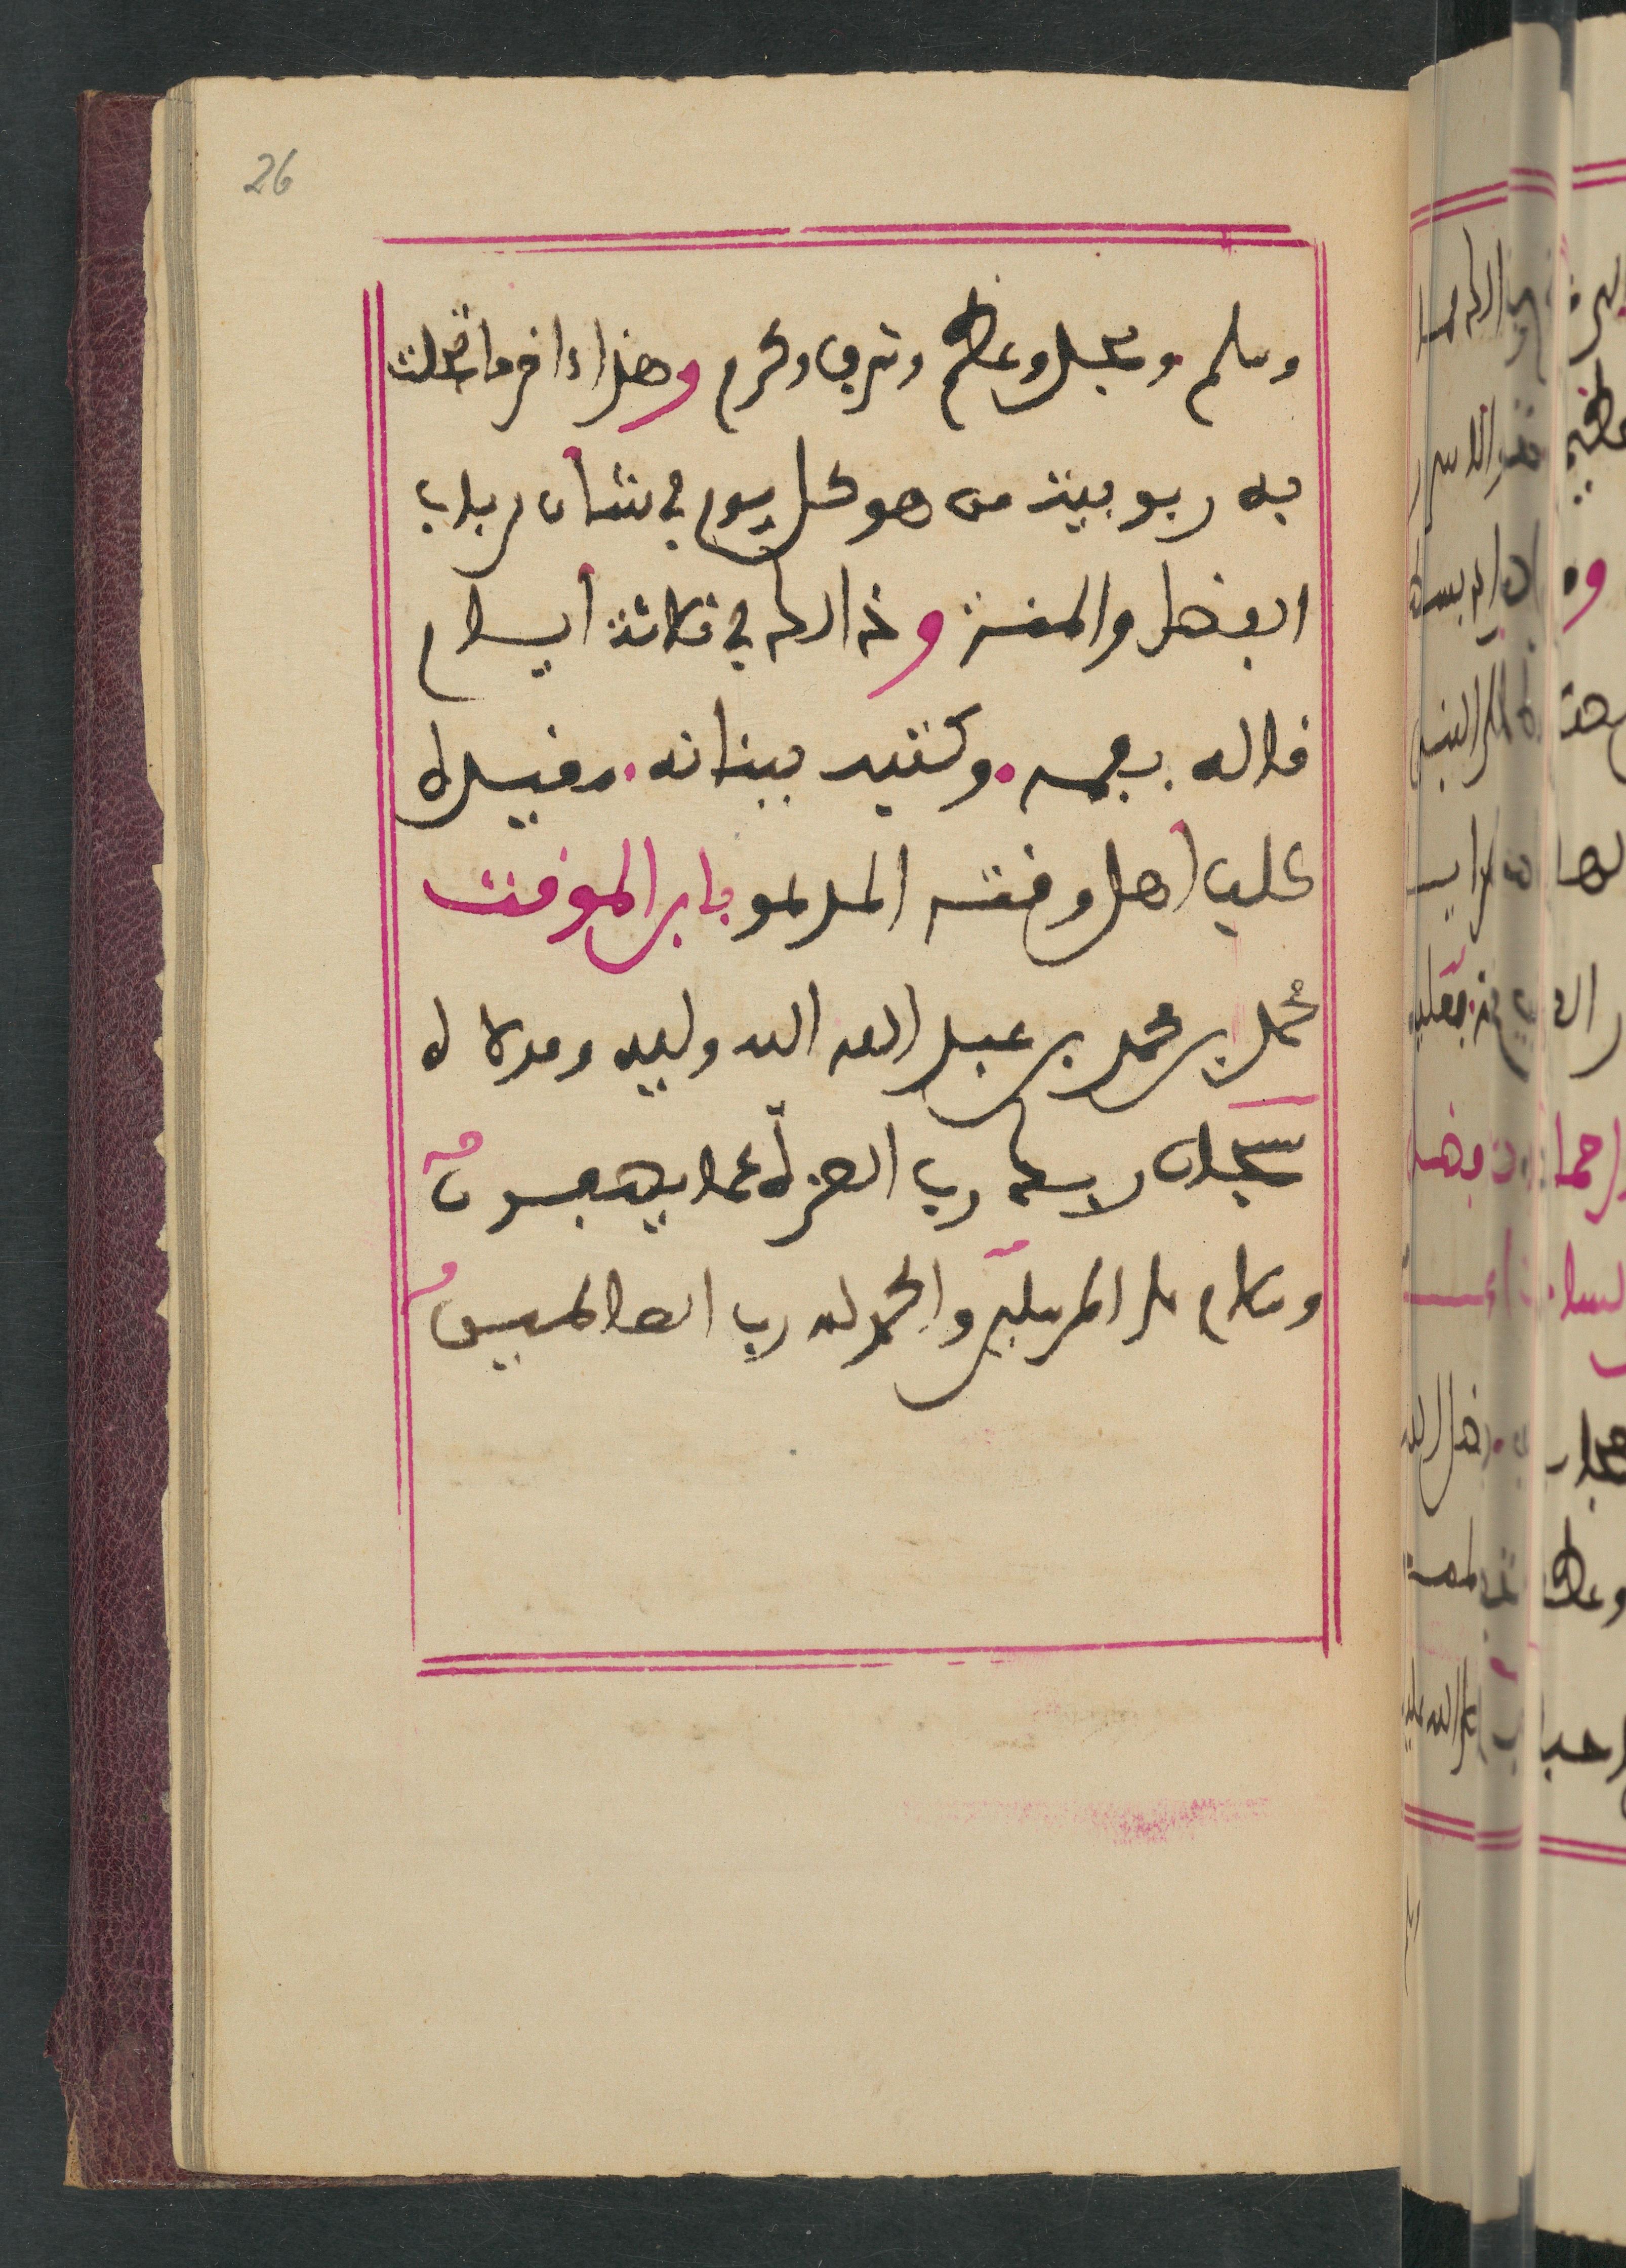 26
وسلم ومجد وعظم وشرف وكرم وهذا ءاخر ما تفضلت
به ربوبية من هو كل يوم في شأن رباب
الفضل والمنة وذالك في ثلاثة أيام
قاله بفمه وكتبه ببنانه رفيده
على أهل وقته المدعو بابن الموقت
محمد بن محمد بن عبد الله الله وليه ومولاه
سبحان ربك رب العزة عما يصفون
وسلام على المرسلين والحمد لله رب العالمين